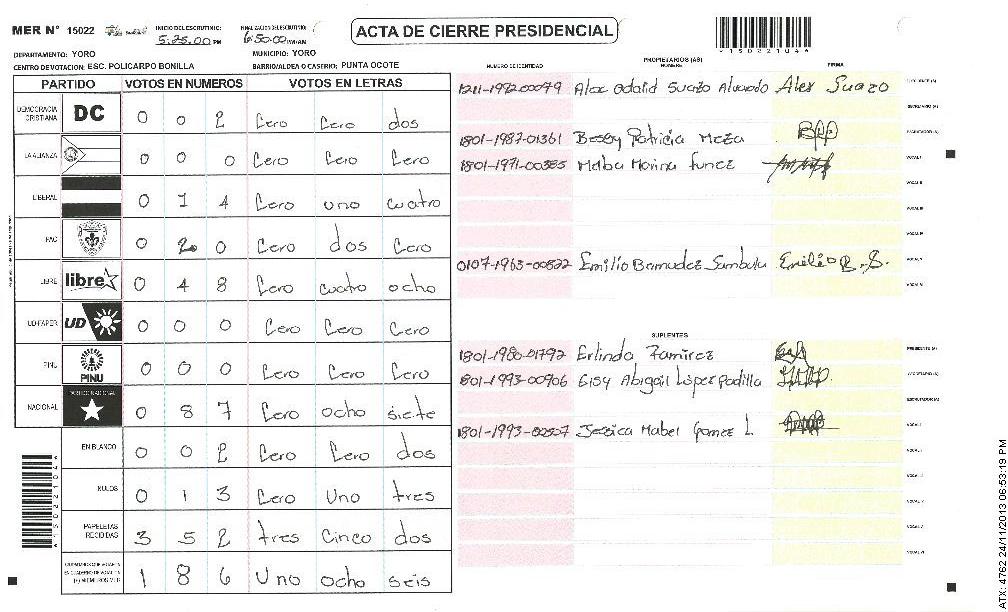 MER N° 15022
INICIO DEL ESCRUTINIO: 5:25:00 PM
FINALIZACION DEL ESCRUTINIO: 6:50:00 PM/AM
ACTA DE CIERRE PRESIDENCIAL
DEPARTAMENTO: YORO MUNICIPIO: YORO
CENTRO DE VOTACION: ESC. POLICARPO BONILLA BARRIO/ALDEA O CASERIO: PUNTA OCOTE
PARTIDO VOTOS EN NUMEROS VOTOS EN LETRAS
DEMOCRACIA CRISTIANA DC 0 0 2 Cero Cero dos
LA ALIANZA 0 0 0 Cero Cero Cero
LIBERAL 0 1 4 Cero uno cuatro
PAC 0 2 0 Cero dos Cero
LIBRE libre 0 4 8 Cero cuatro ocho
UD-FAPER UD 0 0 0 Cero Cero Cero
PINU PINU 0 0 0 Cero Cero Cero
NACIONAL PARTIDO NACIONAL 0 8 7 Cero ocho siete
EN BLANCO 0 0 2 Cero Cero dos
NULOS 0 1 3 Cero Uno tres
PAPELETAS RECIBIDAS 3 5 2 tres Cinco dos
1 8 6 Uno ocho seis
PROPIETARIOS (AS)
NUMERO DE IDENTIDAD NOMBRE FIRMA
1211-1992-00079 Alex Odalid Suazo Alvarado Alex Suazo
SECRETARIO (A)
1801-1987-01361 Bessy Patricia Meza ESCRUTADOR (A)
1801-1971-00385 Melba Marina Funez VOCAL I
VOCAL II
VOCAL III
VOCAL IV
0107-1963-00822 Emilio Bermudez Sambula Emilio B. S. VOCAL V
VOCAL VI
SUPLENTES
1801-1980-01792 Erlinda Ramirez PRESIDENTE (A)
1801-1993-00906 Eisy Abigail López Padilla SECRETARIO (A)
ESCRUTADOR (A)
Jessica Mabel Gomez L. VOCAL I
ATX: 4762 24/11/2013 06:53:19 PM